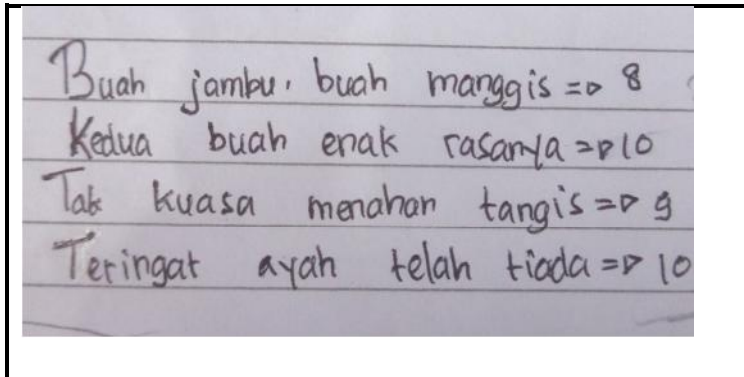 Buah jambu, buah manggis => 8
Kedua buah enak rasanya => 10
Tak kuasa menahan tangis => 9
Teringat ayah telah tiada => 10